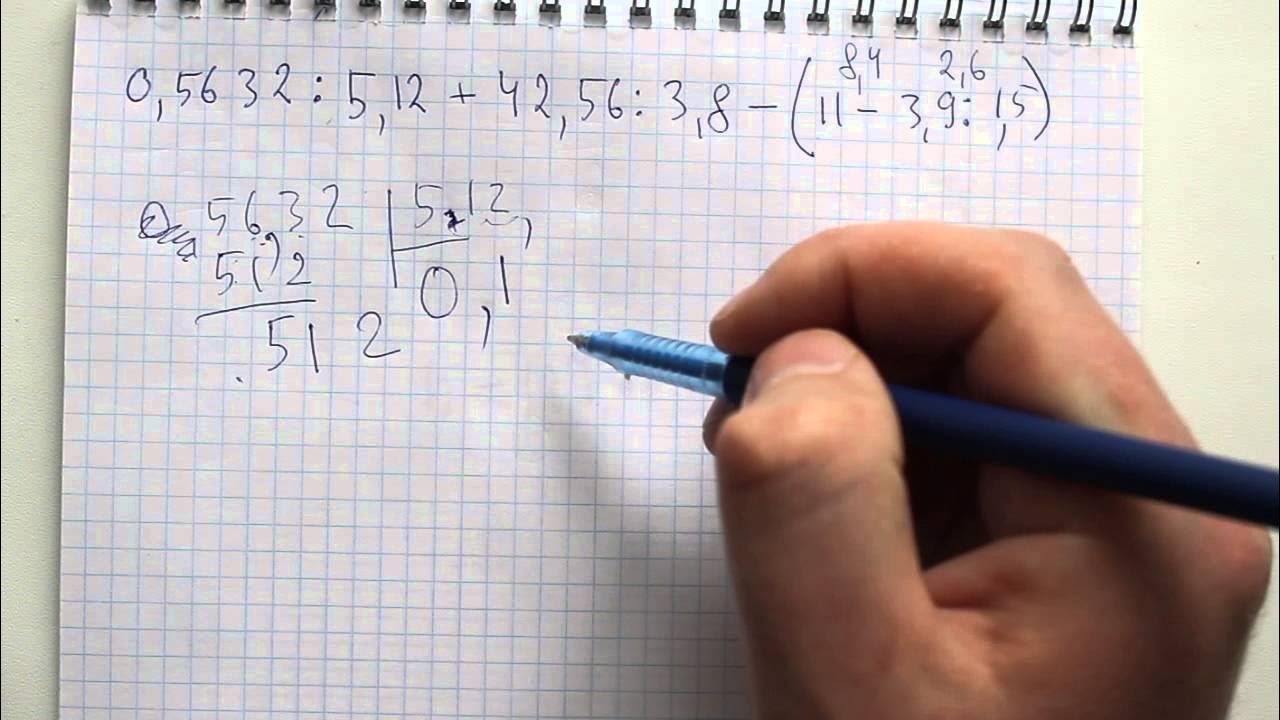 8,4 2,6
0,5632 : 5,12 + 42,56 : 3,8 – (11 – 3,9 : 1,5)
56,32 5,12,
512 0,1
512